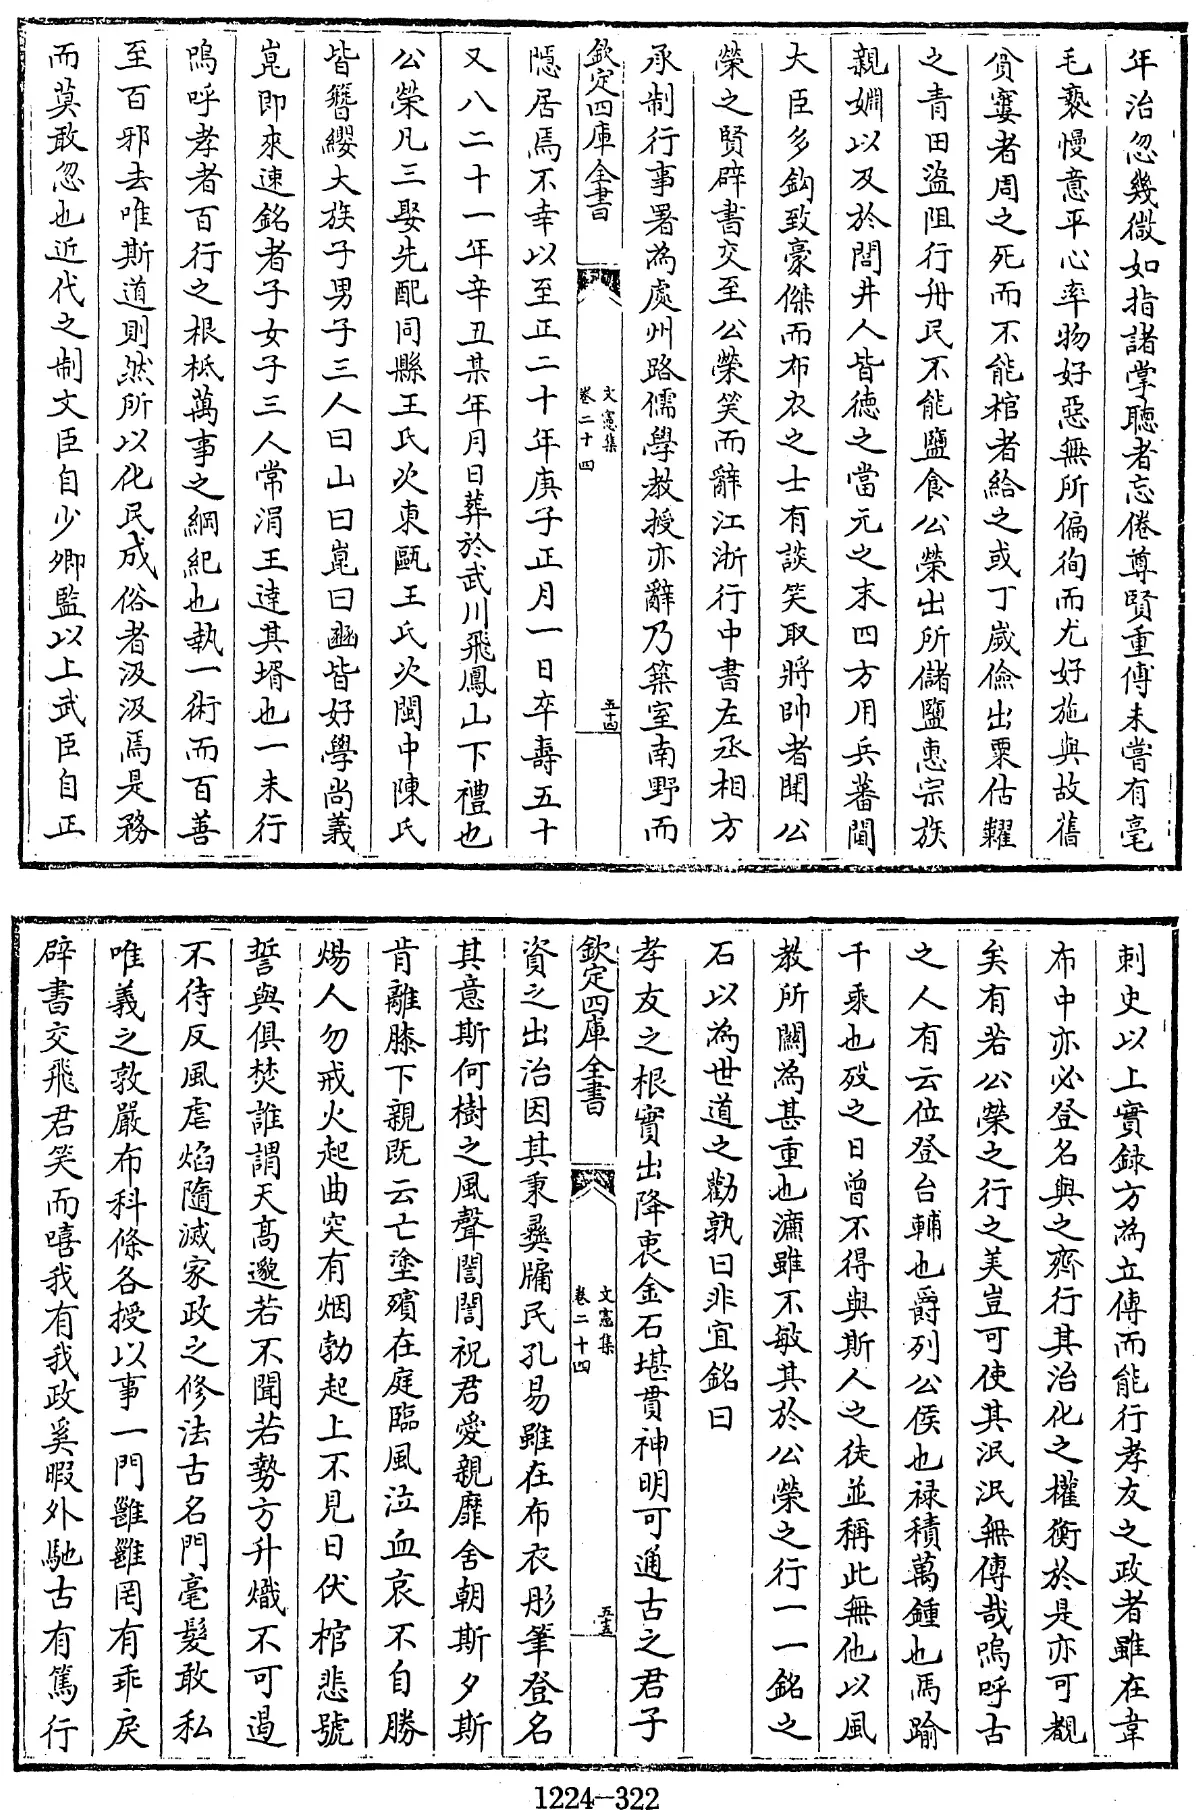 年治忽幾微如指諸掌聽者忘倦尊賢重傅未嘗有毫
毛褻慢意平心率物好惡無所偏徇而尤好施與故舊
貧窶者周之死而不能棺者給之或丁歲儉出粟估糶
之青田盜阻行舟民不能鹽食公榮出所儲鹽惠宗族
親婣以及於閭井人皆德之當元之末四方用兵蕃閫
大臣多鈎致豪傑而布衣之士有談笑取將帥者聞公
榮之賢辟書交至公榮笑而辭江浙行中書左丞相方
承制行事署為處州路儒學教授亦辭乃築室南野而
欽定四庫全書
文憲集
卷二十四
五十四
隱居焉不幸以至正二十年庚子正月一日卒壽五十
又八二十一年辛丑某年月日葬於武川飛鳳山下禮也
公榮凡三娶先配同縣王氏次東甌王氏次閩中陳氏
皆簪纓大族子男子三人曰山曰崑曰豳皆好學尚義
崑即來速銘者子女子三人常涓王達其壻也一未行
嗚呼孝者百行之根柢萬事之綱紀也執一術而百善
至百邪去唯斯道則然所以化民成俗者汲汲焉是務
而莫敢忽也近代之制文臣自少卿監以上武臣自正
刺史以上實録方為立傳而能行孝友之政者雖在韋
布中亦必登名與之齊行其治化之權衡於是亦可覩
矣有若公榮之行之美豈可使其泯泯無傳哉嗚呼古
之人有云位登台輔也爵列公侯也禄積萬鍾也馬踰
千乘也殁之日曾不得與斯人之徒並稱此無他以風
教所關為甚重也濂雖不敏其於公榮之行一一銘之
石以為世道之勸孰曰非宜銘曰
孝友之根實出降衷金石堪貫神明可通古之君子
欽定四庫全書
文憲集
卷二十四
五十五
資之出治因其秉彞牖民孔易雖在布衣彤筆登名
其意斯何樹之風聲誾誾祝君愛親靡舍朝斯夕斯
肯離膝下親既云亡塗殯在庭臨風泣血哀不自勝
煬人勿戒火起曲突有烟勃起上不見日伏棺悲號
誓與俱焚誰謂天髙邈若不聞若勢方升熾不可遏
不待反風虐焰隨滅家政之修法古名門毫髮敢私
唯義之敦嚴布科條各授以事一門雝雝罔有乖戾
辟書交飛君笑而嘻我有我政奚暇外馳古有篤行
1224-322